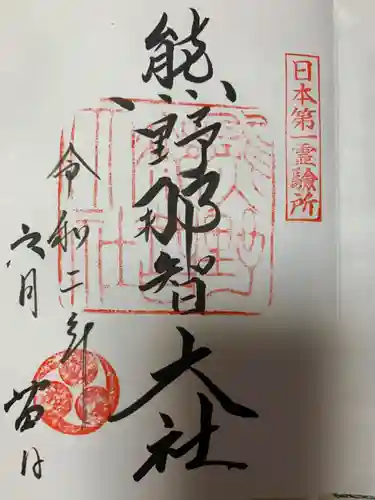 日本第一霊験所
熊野那智大社
令和二年
六月